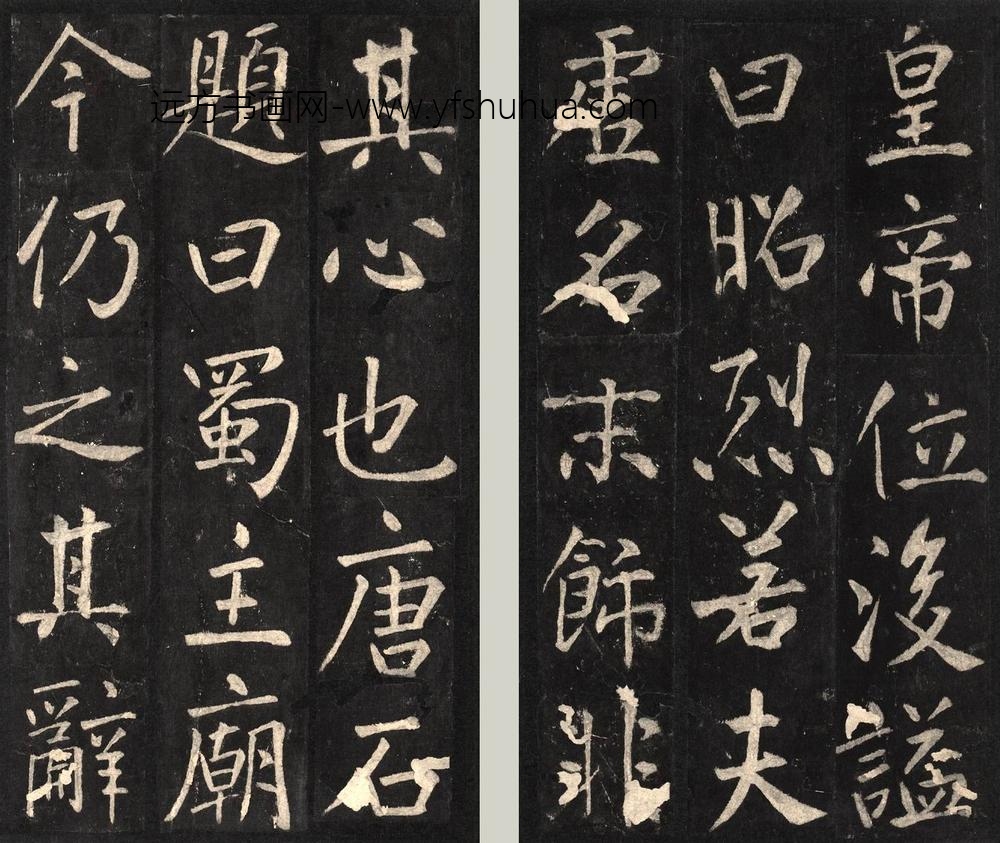 皇帝位後諡
曰昭烈若夫
虚名末飾非
其心也唐石
題曰蜀主廟
今仍之其辭
远方书画网-www.yfshuhua.com